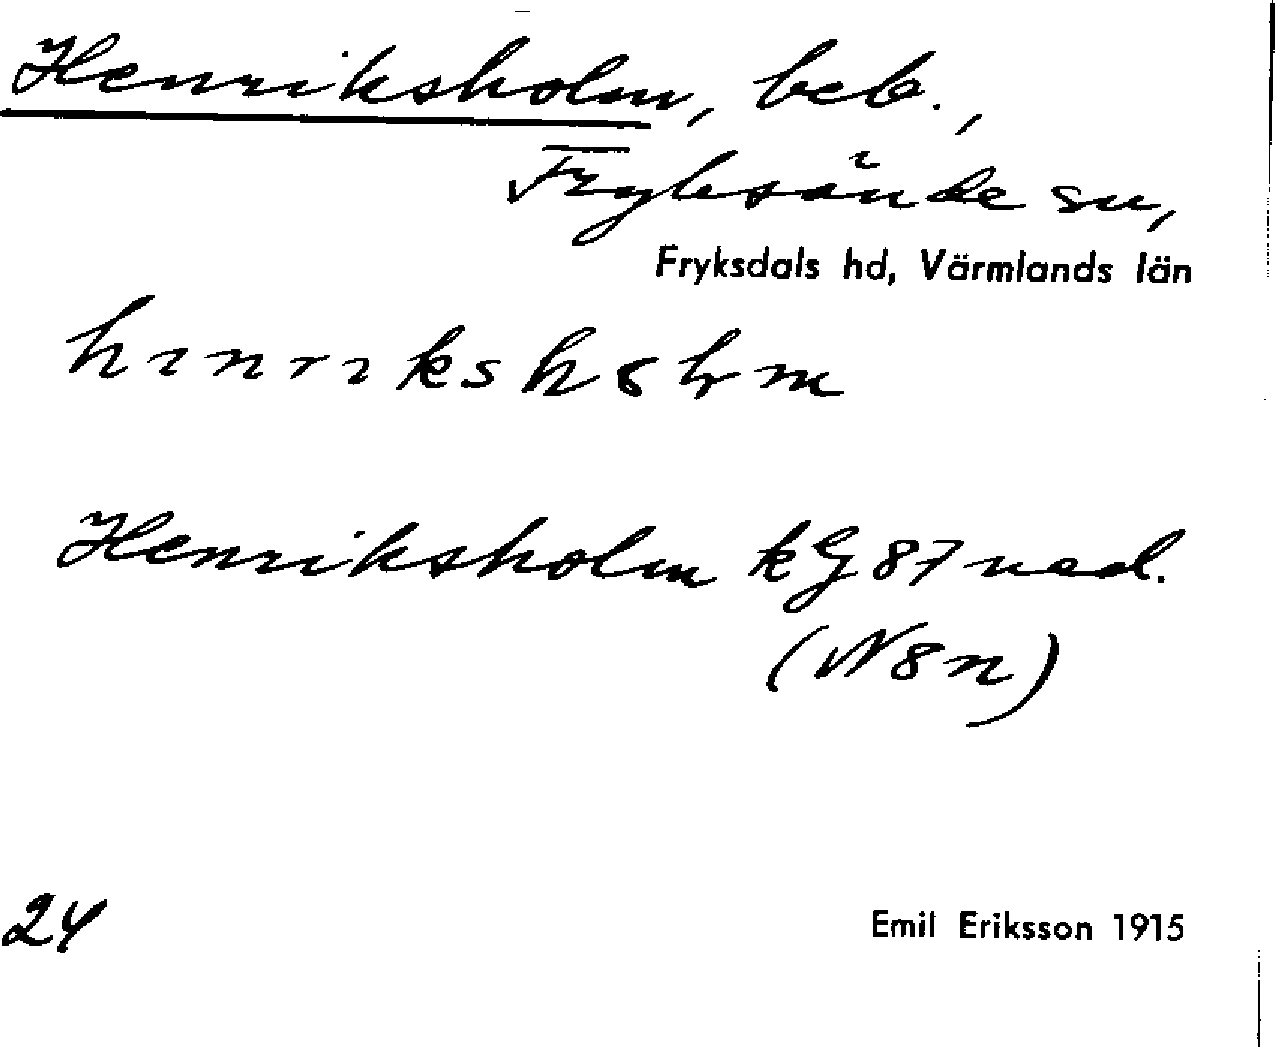 Henriksholm, beb.,
Fryksände sn,
Fryksdals hd, Värmlands län
Henriksholm kG 87 ned.
(N8n)
24
Emil Eriksson 1915